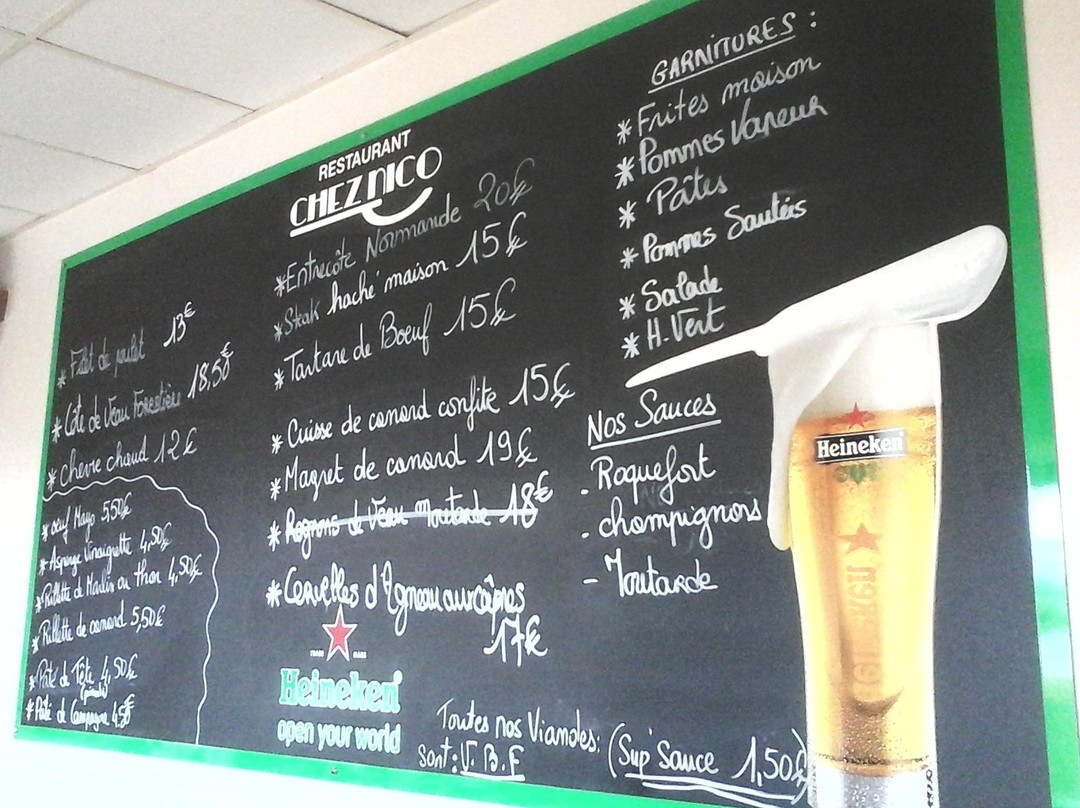 RESTAURANT
CHEZ NICO
* Filet de poulet 13€
* Côte de Veau Forestière 18,50€
* chevre chaud 12€
* oeuf Mayo 5,50€
* Asperge Vinaigrette 4,50€
* Rillette de Merlin ou thon 4,50€
* Rillette de canard 5,50€
* Pâté de Tête 4,50€
* Pâté de Campagne 4,50€
* Entrecôte Normande 20€
* Steak haché maison 15€
* Tartare de Boeuf 15€
* Cuisse de canard confite 15€
* Magret de canard 19€
* Rognons de Veau Moutarde 18€
* Cervelles d'Agneau aux câpres
17€
Heineken
open your world
GARNITURES :
* Frites maison
* Pommes Vapeur
* Pâtes
* Pommes Sautées
* Salade
* H. Vert
Nos Sauces
- Roquefort
- champignons
- Moutarde
Toutes nos Viandes :
Sont : V. B. F
(Sup' Sauce 1,50€)
Heineken